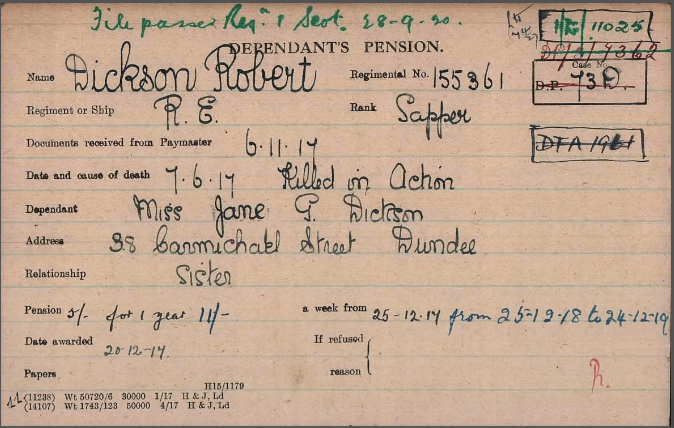 File passed Regn 1 Scot. 28-9-20.
11025
DEPENDANT'S PENSION.
D/5/7362
Name Dickson Robert Regimental No. 155361
Case No.
D.P. 73D.
Regiment or Ship R. E. Rank Sapper
Documents received from Paymaster 6.11.17
DTA 1961
Date and cause of death 7.6.17 Killed in Action
Dependant Miss Jane G. Dickson
Address 38 Carmichael Street Dundee
Relationship Sister
Pension 5/- for 1 year 11/- a week from 25-12-17 from 25-12-18 to 24-12-19
Date awarded 20-12-17. If refused
Papers reason
R.
H15/1179
(11238) Wt 50720/6 30000 1/17 H & J, Ld
(14107) Wt 1743/123 50000 4/17 H & J, Ld